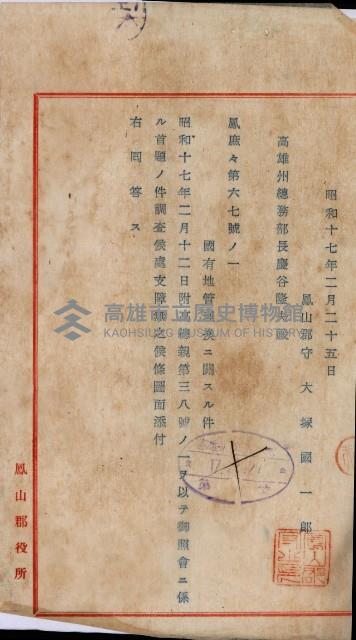 昭和十七年二月二十五日
鳳山郡守 大塚國一郎
高雄州總務部長慶谷隆夫殿
鳳庶々第六七號ノ一
國有地管理換ニ關スル件
昭和十七年二月十二日附高總親第三八號ノ一ヲ以テ御照會ニ係
ル首題ノ件調査候處支障無之候條圖面添付
右回答ス
鳳山郡役所
高雄市立歷史博物館
KAOHSIUNG MUSEUM OF HISTORY